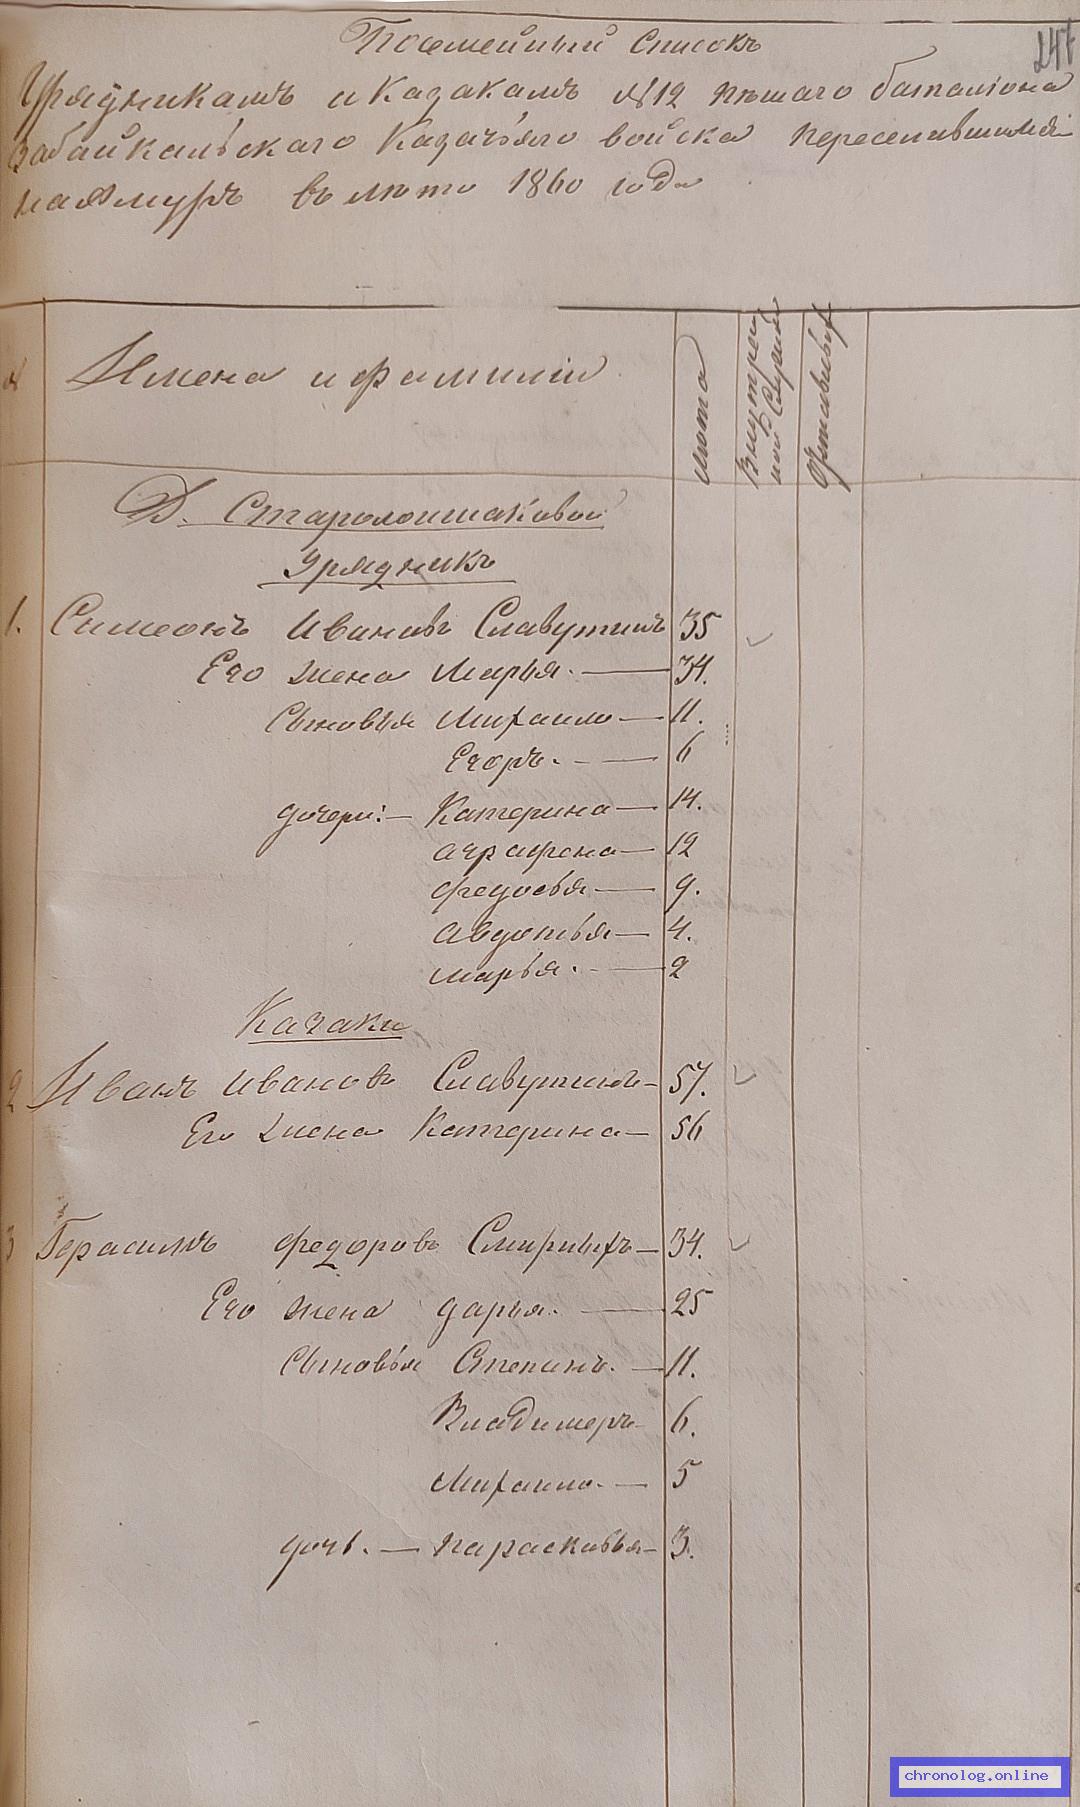 247
Посемейный списокъ
Урядникамъ и Казакамъ №12 пѣшаго баталіона
Забайкальскаго Казачьяго войска переселившимся
на Амуръ въ лѣто 1860 года
№ Имена и фамиліи лѣта Внутрен ной Служ
Д.
Урядникъ
1. Симеонъ Ивановъ Славутинъ 35
Его жена Марья. — 34.
Сыновья Михаило — 11.
Егоръ. — 6
дочери: — Катерина — 14.
аграфена — 12
федосья — 9.
авдотья — 4.
марья. — 2
Казаки
2 Иванъ Ивановъ Славутинъ — 57.
Его жена Катерина — 56
3 Герасимъ федоровъ Смирныхъ — 34.
Его жена дарья. — 25
сыновья Степанъ. — 11.
Владимеръ — 6.
Михаило. — 5
дочь. — параскавья — 3.
chronolog.online